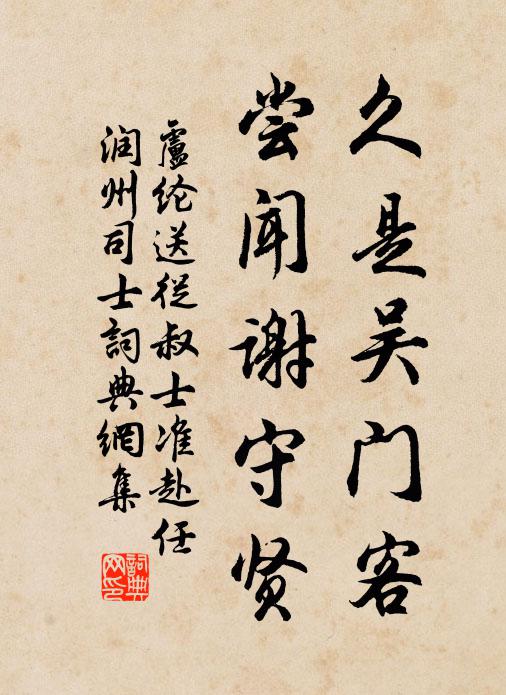 久是吴门客
尝闻谢守贤
盧纶送從叔士准赴任
润州司士詞典網集
詞典
网印